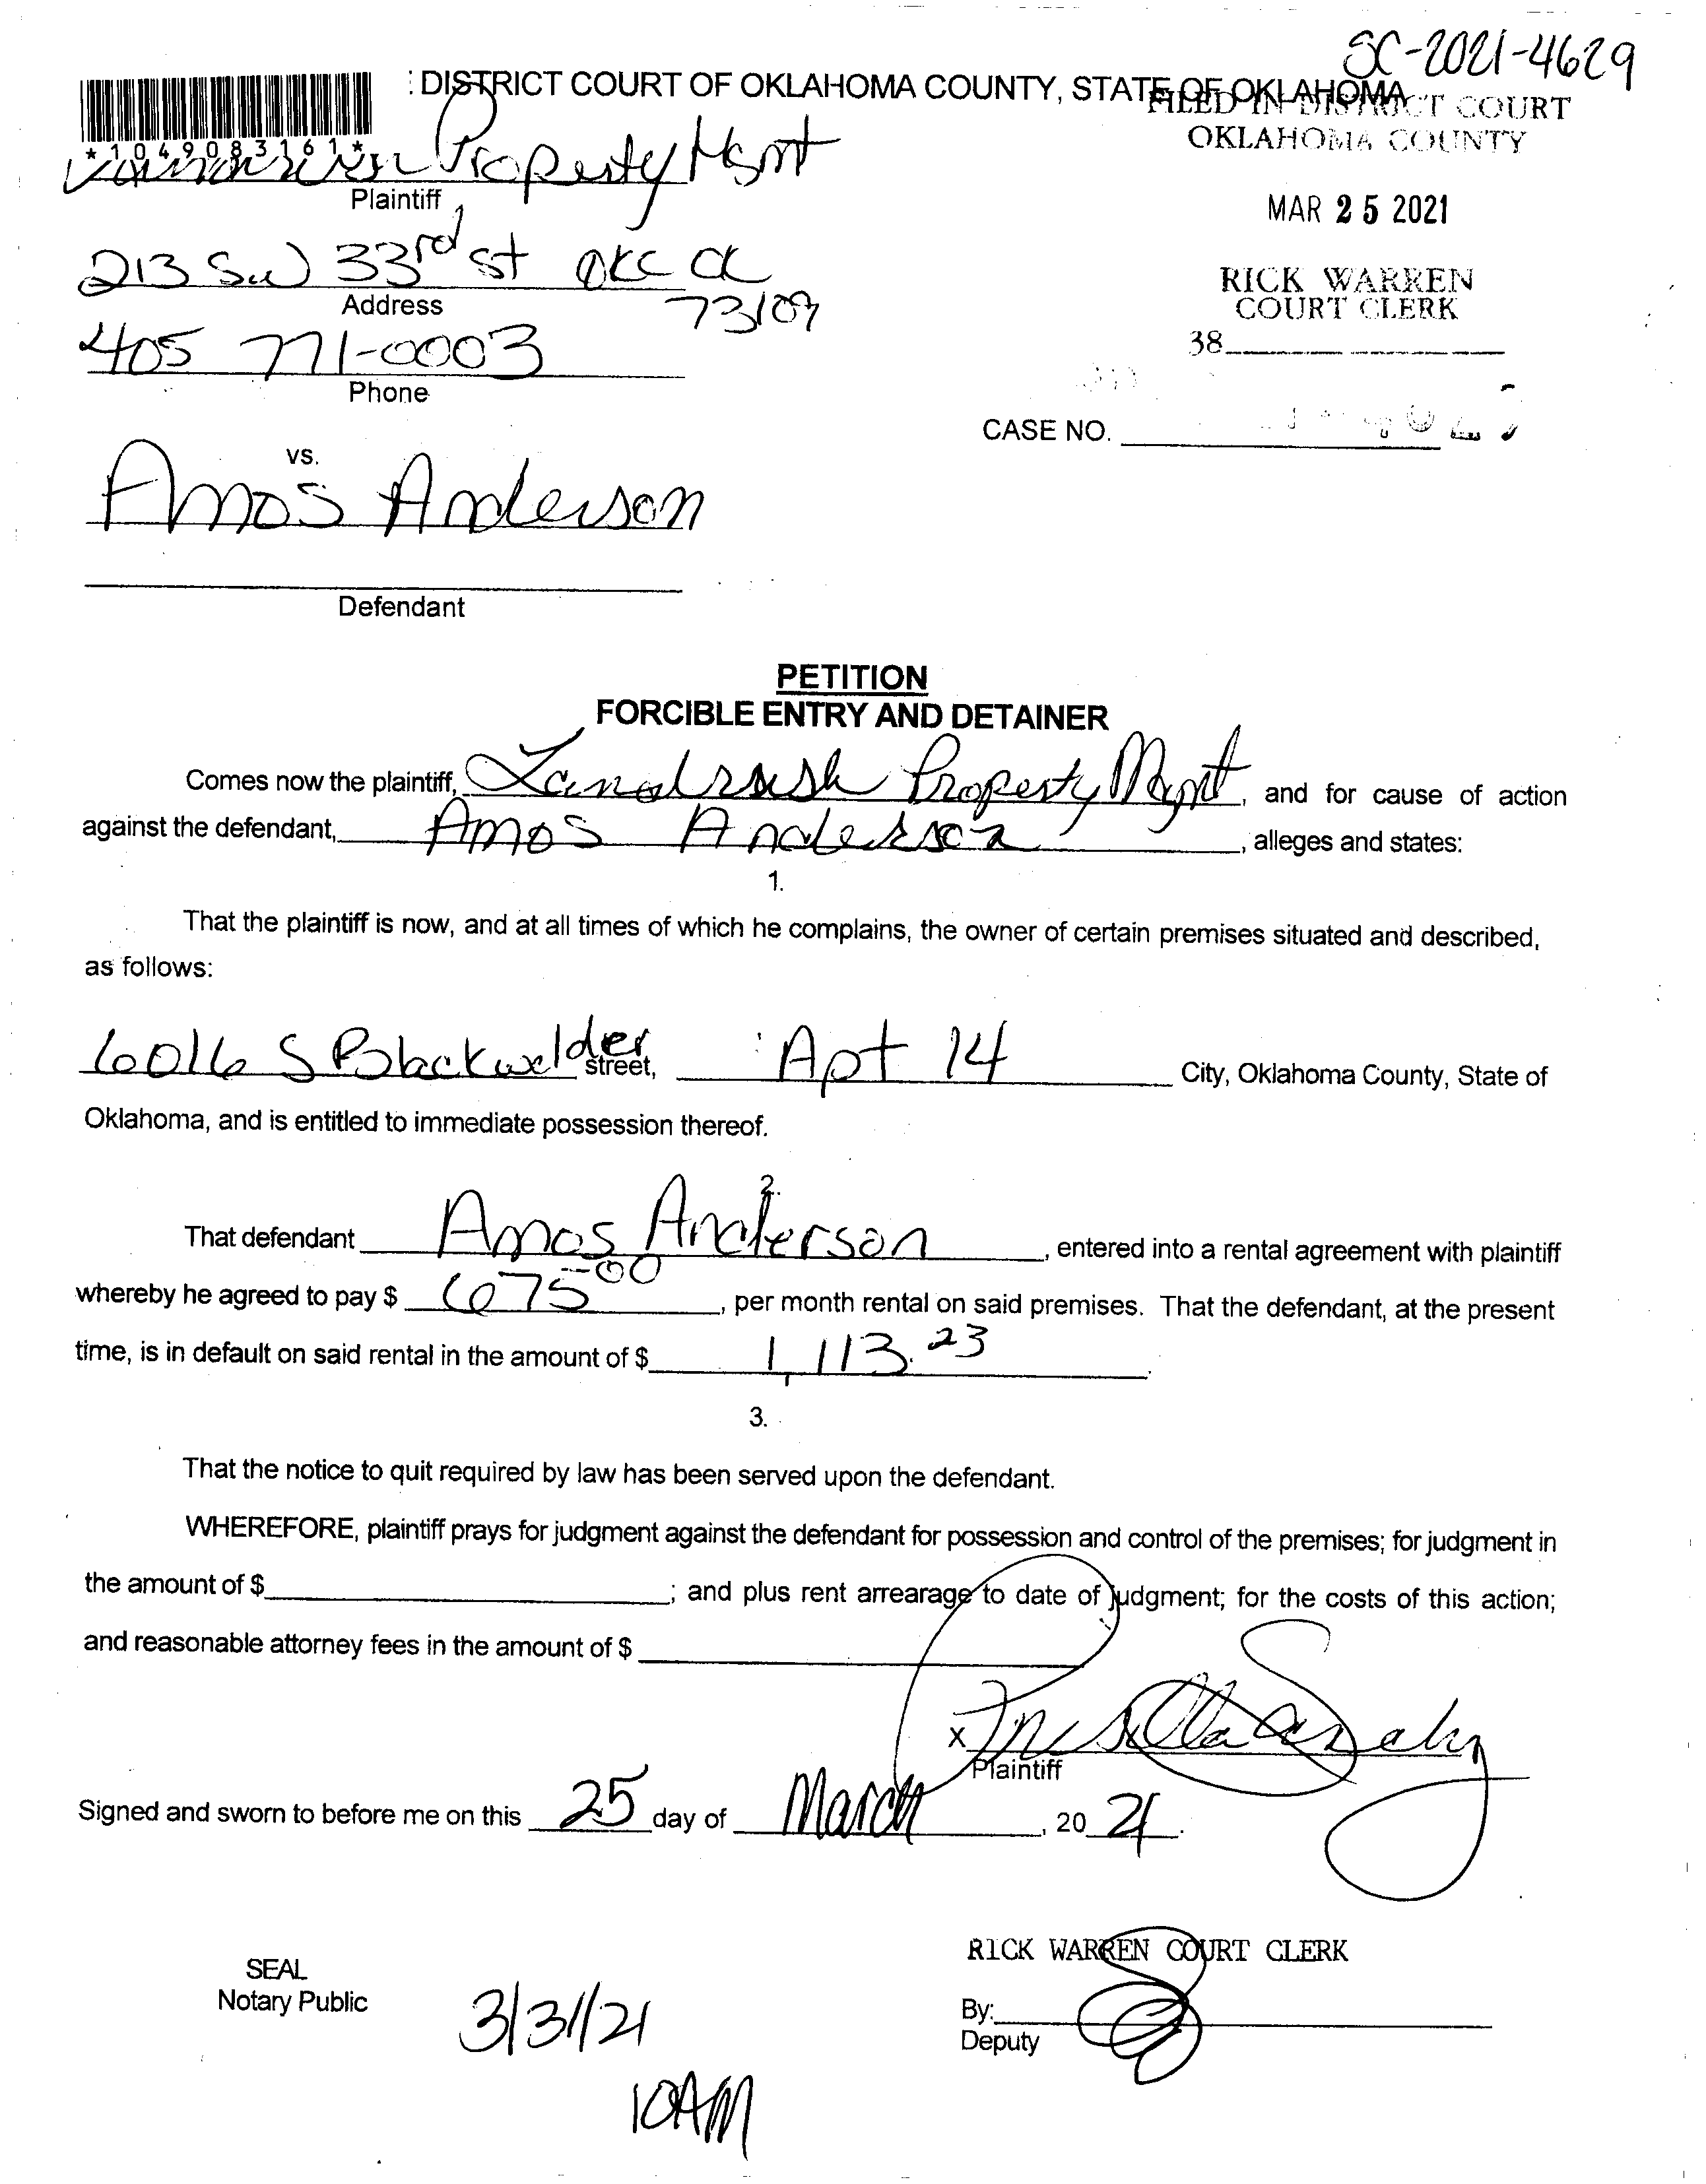 SC-2021-4629
DISTRICT COURT OF OKLAHOMA COUNTY, STATE OF OKLAHOMA
FILED IN DISTRICT COURT
OKLAHOMA COUNTY
*1049083161*
Property Mgmt
Plaintiff
MAR 25 2021
213 SW 33rd St OKC OK
Address
73109
RICK WARREN
COURT CLERK
405 771-0003
38
Phone
CASE NO.
vs.
Amos Anderson
Defendant
PETITION
FORCIBLE ENTRY AND DETAINER
Comes now the plaintiff, Landrush Property Mgmt, and for cause of action
against the defendant, Amos Anderson, alleges and states:
1.
That the plaintiff is now, and at all times of which he complains, the owner of certain premises situated and described,
as follows:
6016 S Blackwelder street, Apt 14 City, Oklahoma County, State of
Oklahoma, and is entitled to immediate possession thereof.
2.
That defendant Amos Anderson, entered into a rental agreement with plaintiff
whereby he agreed to pay $ 675.00, per month rental on said premises. That the defendant, at the present
time, is in default on said rental in the amount of $ 1,113.23.
3.
That the notice to quit required by law has been served upon the defendant.
WHEREFORE, plaintiff prays for judgment against the defendant for possession and control of the premises; for judgment in
the amount of $ ; and plus rent arrearage to date of judgment; for the costs of this action;
and reasonable attorney fees in the amount of $
x Priscilla
Plaintiff
Signed and sworn to before me on this 25 day of March, 20 21.
RICK WARREN COURT CLERK
SEAL
Notary Public
3/31/21
By:
Deputy
10AM